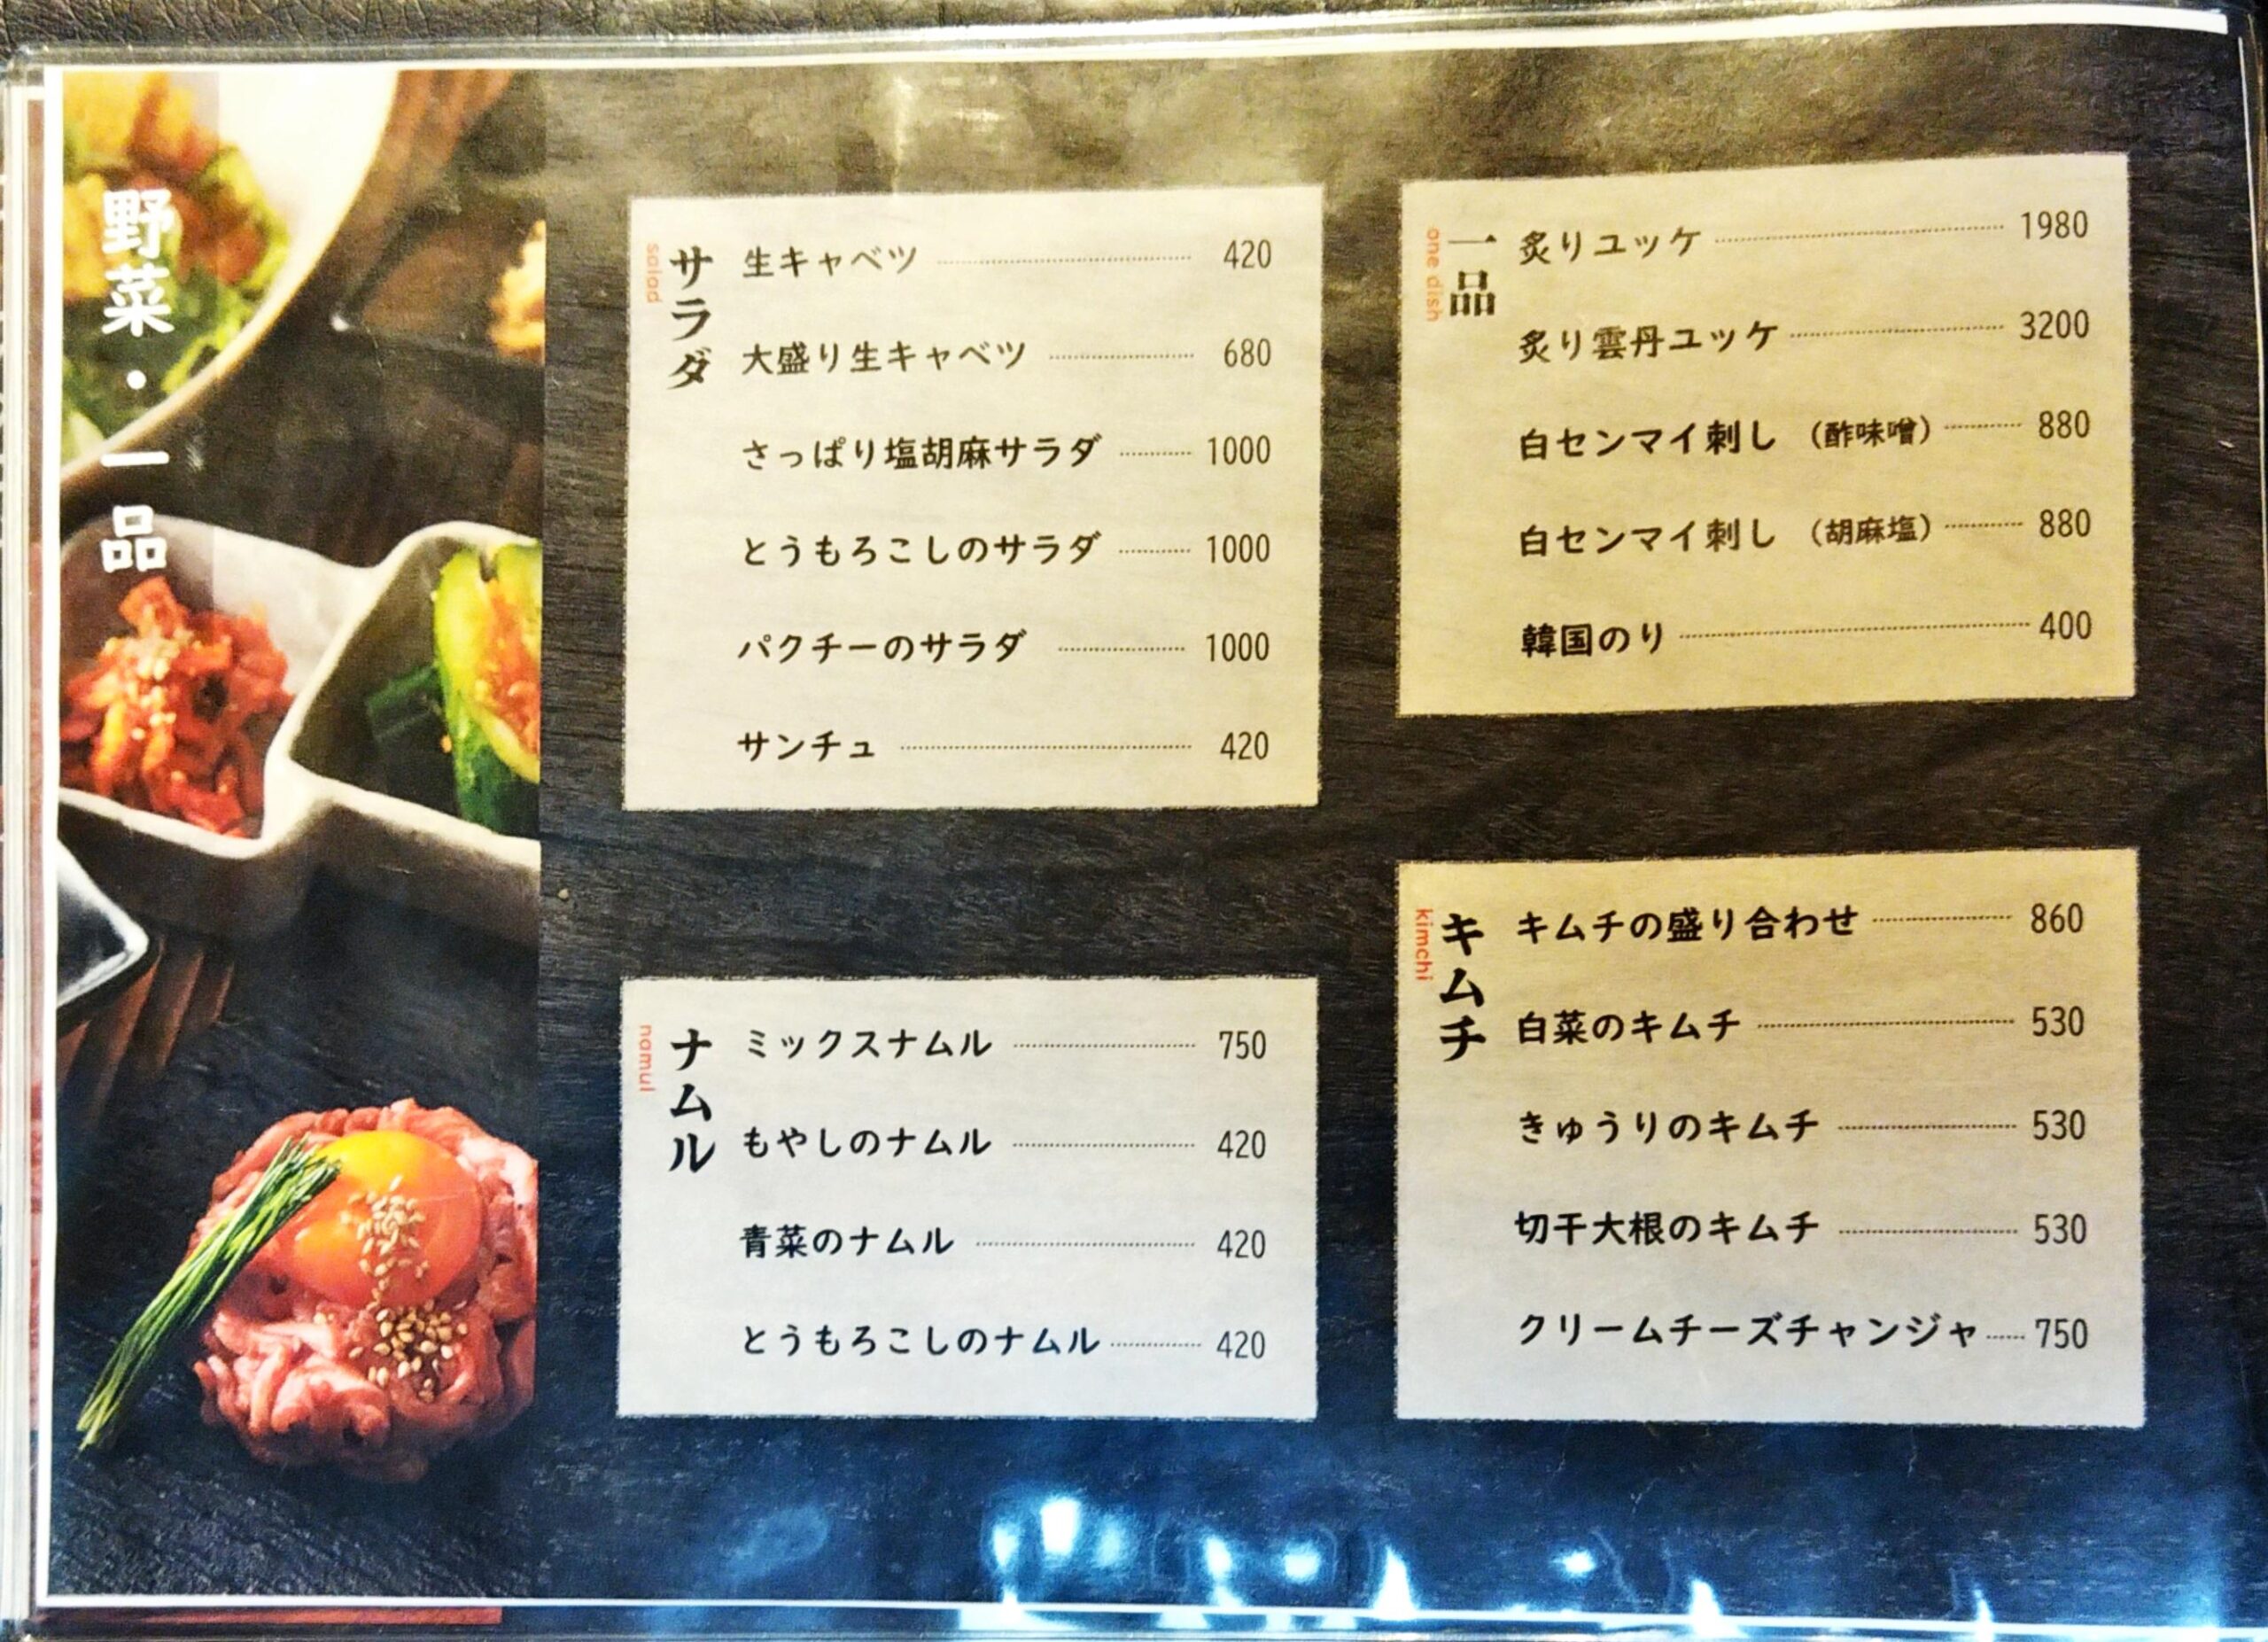 野菜・一品
サラダ
salad
生キャベツ 420
大盛り生キャベツ 680
さっぱり塩胡麻サラダ 1000
とうもろこしのサラダ 1000
パクチーのサラダ 1000
サンチュ 420
ナムル
namul
ミックスナムル 750
もやしのナムル 420
青菜のナムル 420
とうもろこしのナムル 420
一品
one dish
炙りユッケ 1980
炙り雲丹ユッケ 3200
白センマイ刺し (酢味噌) 880
白センマイ刺し (胡麻塩) 880
韓国のり 400
キムチ
kimchi
キムチの盛り合わせ 860
白菜のキムチ 530
きゅうりのキムチ 530
切干大根のキムチ 530
クリームチーズチャンジャ 750